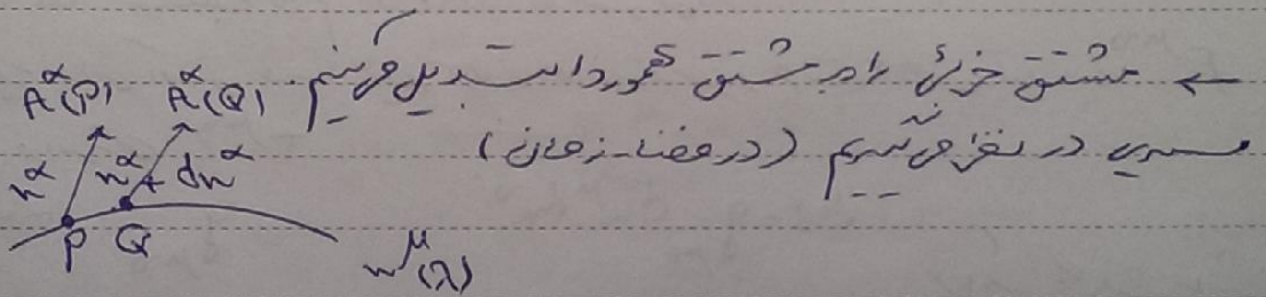 ← مشتق جزئی را به مشتق هموردا تبدیل می‌کنیم.
مسیری در نظر می‌گیریم (در فضا-زمان)
A^α(P) A^α(Q)
x^α x^α + dx^α
P Q
x^μ(λ)